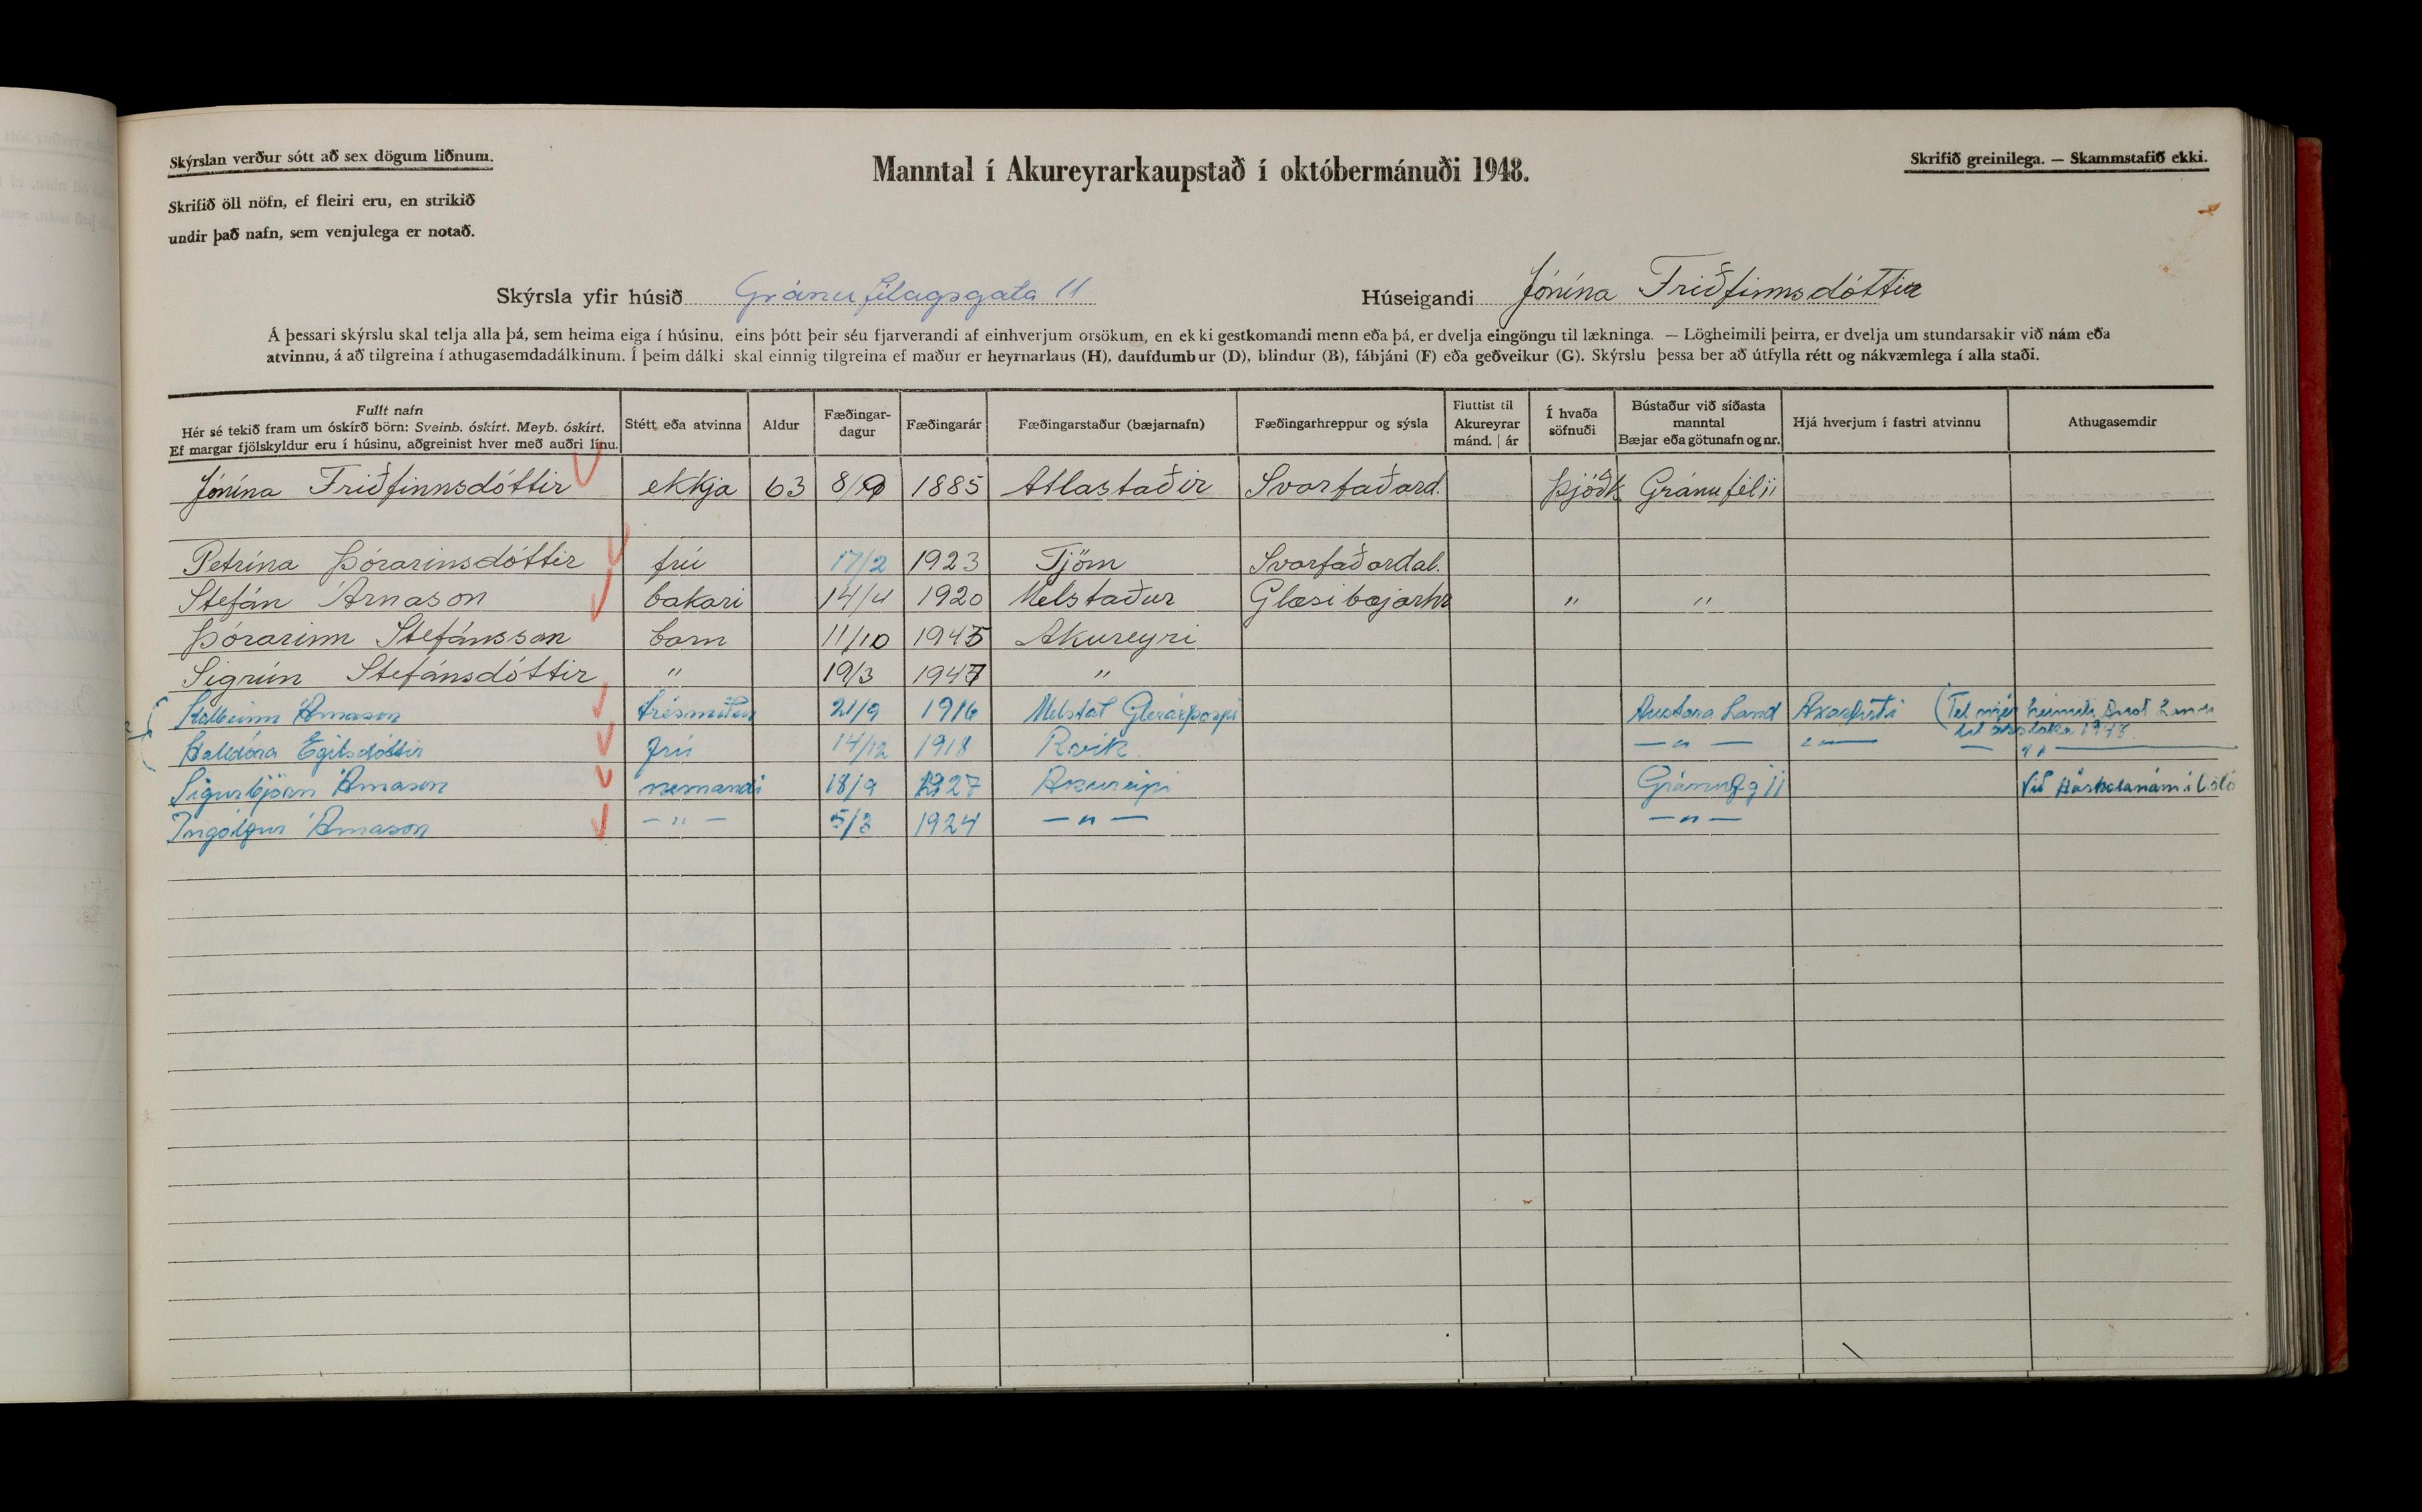 Skýrslan verður sótt að sex dögum liðnum.
Skrifið öll nöfn, ef fleiri eru, en strikið
undir það nafn, sem venjulega er notað.
Manntal í Akureyrarkaupstað í októbermánuði 1948.
Skrifið greinilega. — Skammstafið ekki.
Skýrsla yfir húsið Gránufélagsgata 11
Húseigandi Jónína Friðfinnsdóttir
Á þessari skýrslu skal telja alla þá, sem heima eiga í húsinu, eins þótt þeir séu fjarverandi af einhverjum orsökum, en ekki gestkomandi menn eða þá, er dvelja eingöngu til lækninga. — Lögheimili þeirra, er dvelja um stundarsakir við nám eða
atvinnu, á að tilgreina í athugasemdadálkinum. Í þeim dálki skal einnig tilgreina ef maður er heyrnarlaus (H), daufdumbur (D), blindur (B), fábjáni (F) eða geðveikur (G). Skýrslu þessa ber að útfylla rétt og nákvæmlega í alla staði.
Fullt nafn
Hér sé tekið fram um óskírð börn: Sveinb. óskírt. Meyb. óskírt.
Ef margar fjölskyldur eru í húsinu, aðgreinist hver með auðri línu.
Stétt eða atvinna
Aldur
Fæðingar-
dagur
Fæðingarár
Fæðingarstaður (bæjarnafn)
Fæðingarhreppur og sýsla
Fluttist til
Akureyrar
mánd. | ár
Í hvaða
söfnuði
Bústaður við síðasta
manntal
Bæjar eða götunafn og nr.
Hjá hverjum í fastri atvinnu
Athugasemdir
Jónína Friðfinnsdóttir ekkja 63 8/9 1885 Atlastaðir Svarfaðard. Þjóðk Gránufél 11
Petrína Þórarinsdóttir frú 17/2 1923 Tjörn Svarfaðardal.
Stefán Árnason bakari 14/4 1920 Melstaður Glæsibæjarhr " "
Þórarinn Stefánsson barn 11/10 1945 Akureyri
Sigrún Stefánsdóttir " 19/3 1947 "
Árnason trésmiður 21/9 1916 Melstað Glerárþorpi Austara Land Axarfirði (Tel mér heimili
til ársloka 1948.
Halldóra Egilsdóttir frú 14/12 1918 Rvík. — " — — " — — " —
Sigurbjörn Árnason nemandi 18/9 1927 Akureyri Gránufg 11 Við Háskólanám í Osló
Ingólfur Árnason — " — 5/3 1924 — " — — " —